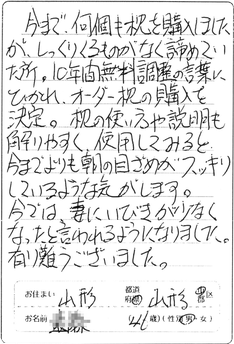 今まで、何個も枕を購入しました
が、しっくりくるものがなく諦めてい
た所。10年間無料調整の言葉に
ひかれ、オーダー枕の購入を
決定。枕の使い方や説明も
解りやすく、使用してみると、
今までよりも朝の目ざめがスッキリ
しているような気がします。
今では、妻にいびきが少なく
なったと言われるようになりました。
有り難うございました。
お住まい 山形 都道府県 山形 市区
お名前 (46歳) (性別 男・女)